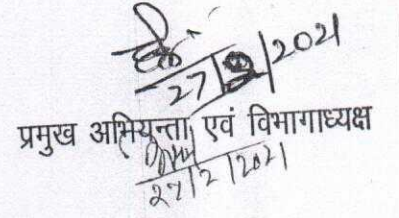 27/2/2021
प्रमुख अभियन्ता एवं विभागाध्यक्ष
27/2/2021